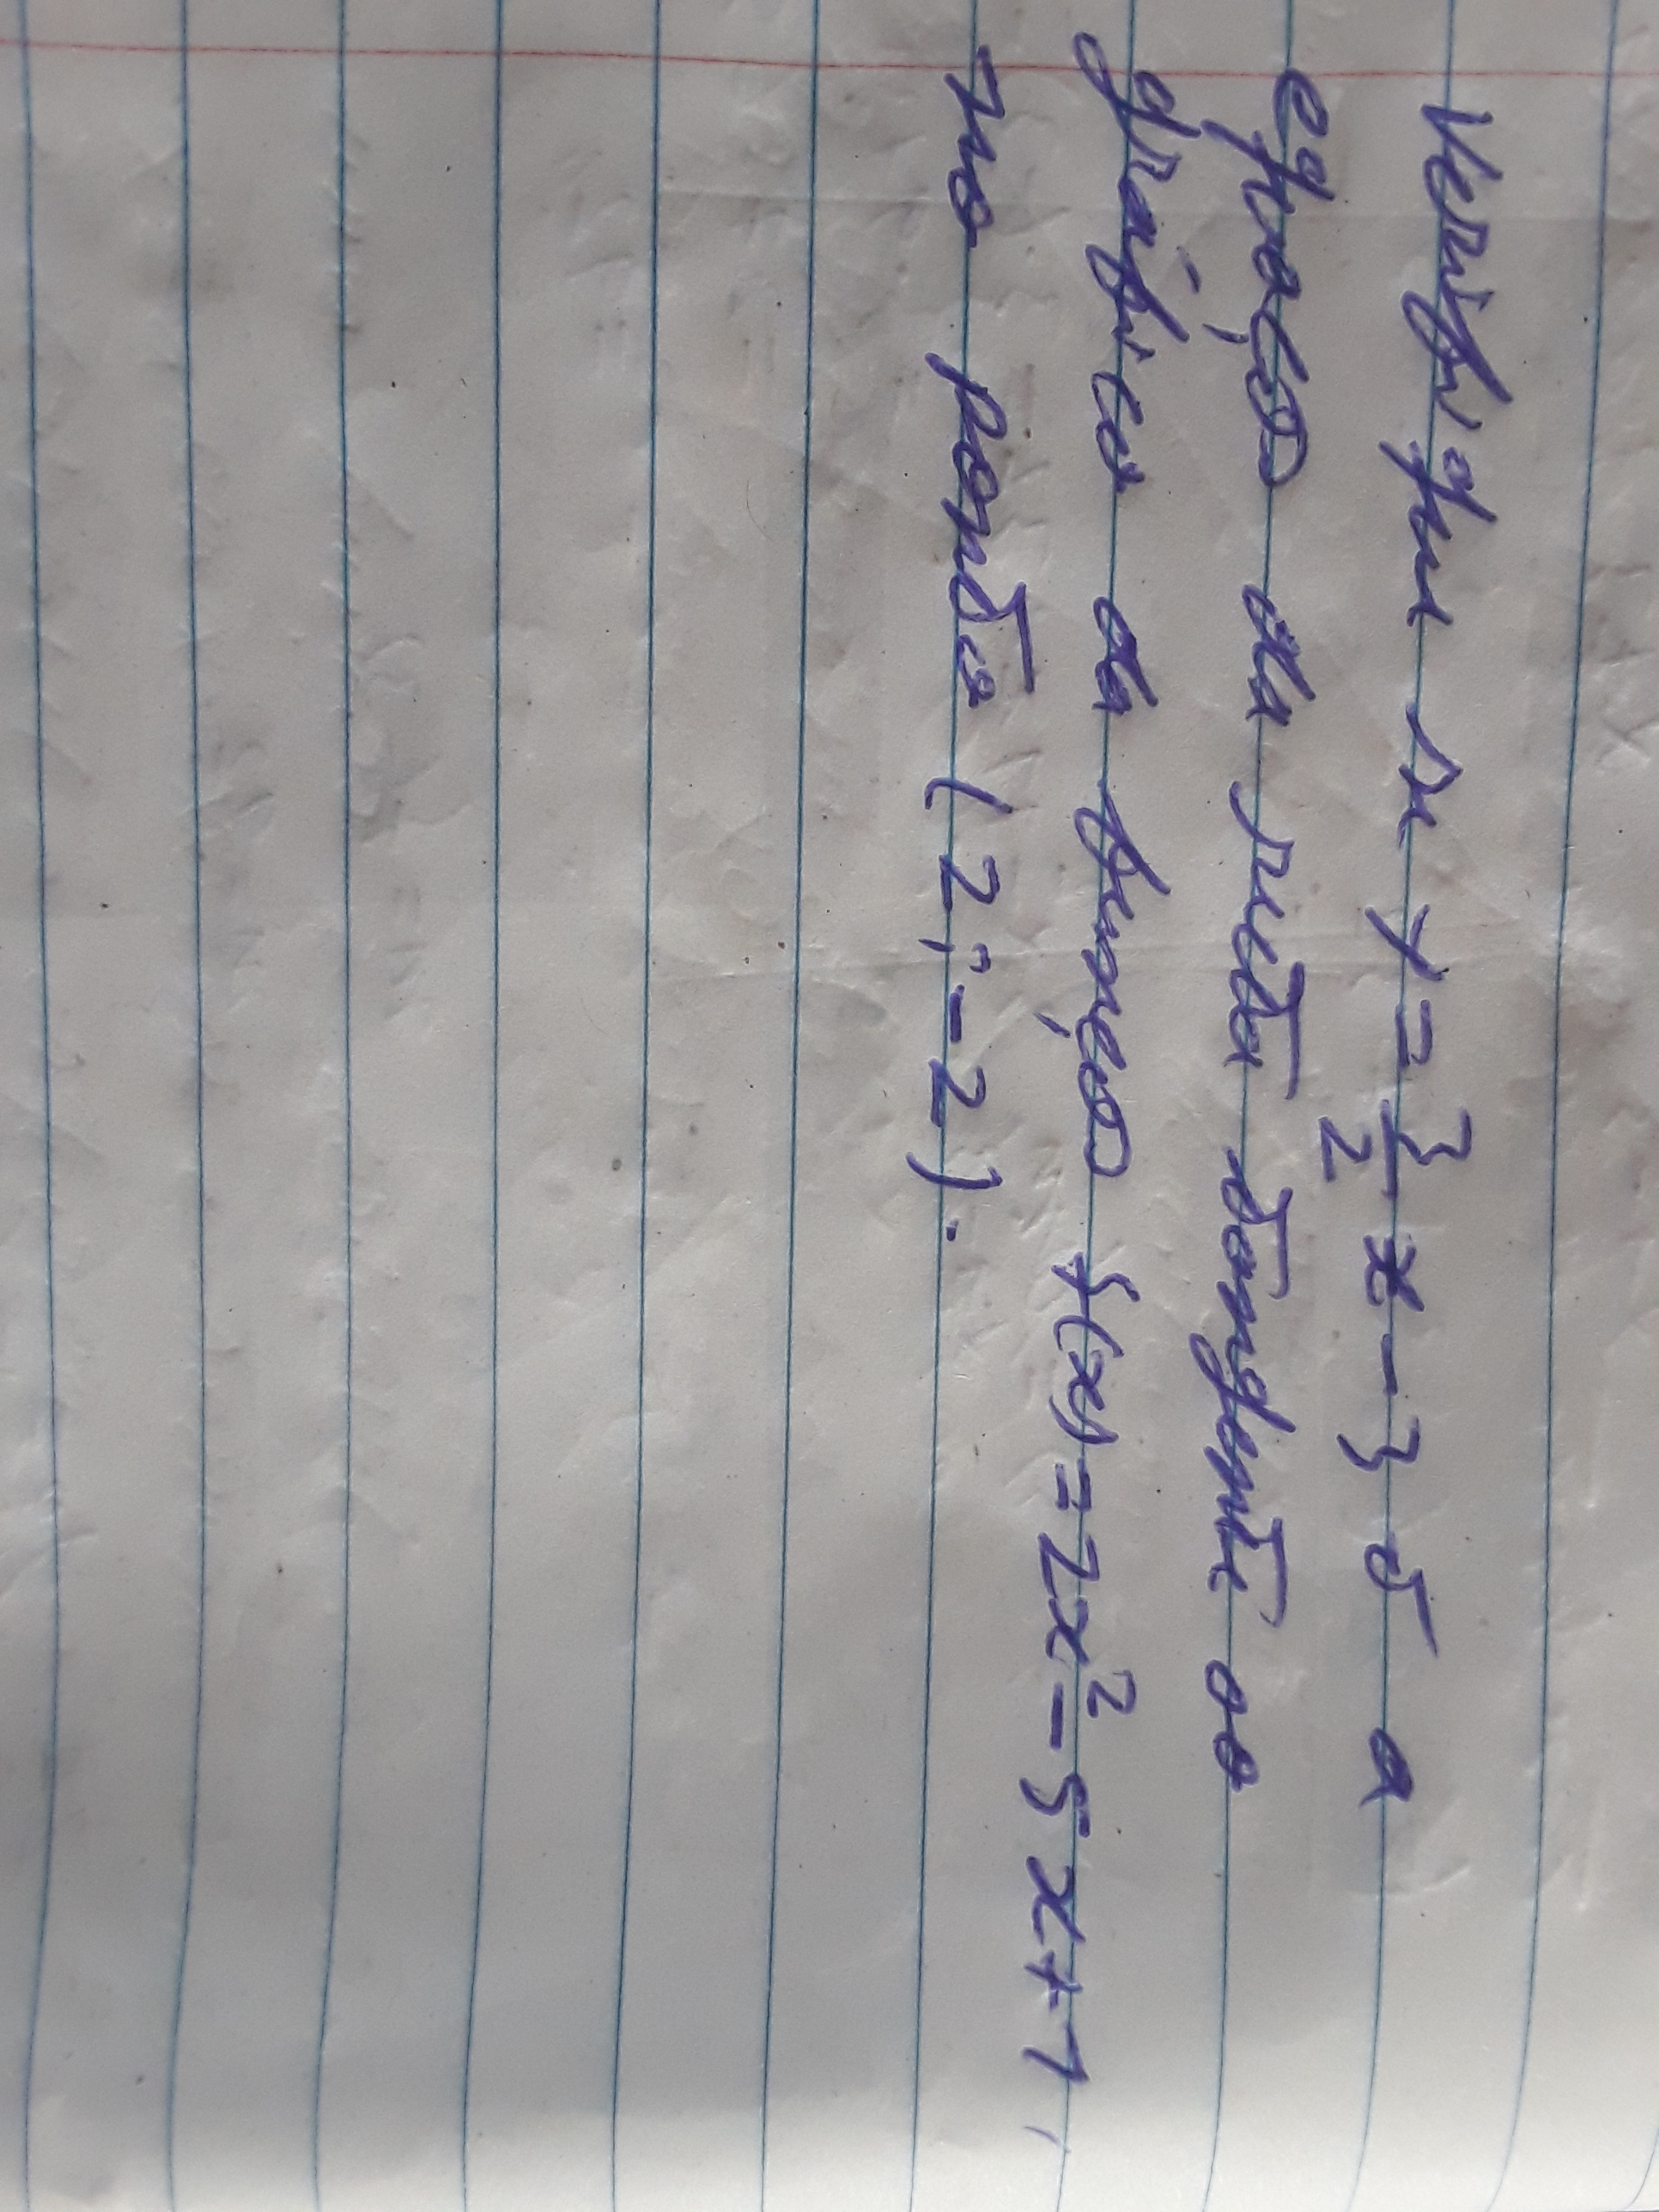 Verifique se y = 3/2 x - 3 é a
equação da reta tangente ao
gráfico da função f(x) = 2x² - 5x + 1,
no ponto (2; -2).